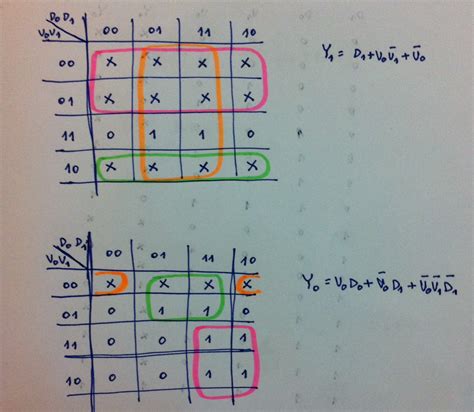 D₀ D₁
V₀V₁ 00 01 11 10
00 X X X X
01 X X X X
11 0 1 1 0
10 X X X X
Y₁ = D₁+V₀V̄₁+V̄₀
D₀ D₁
V₀V₁ 00 01 11 10
00 X X X X
01 0 1 1 0
11 0 0 1 1
10 0 0 1 1
Y₀ = V₀D₀+V̄₀D₁+V̄₀V̄₁D̄₁